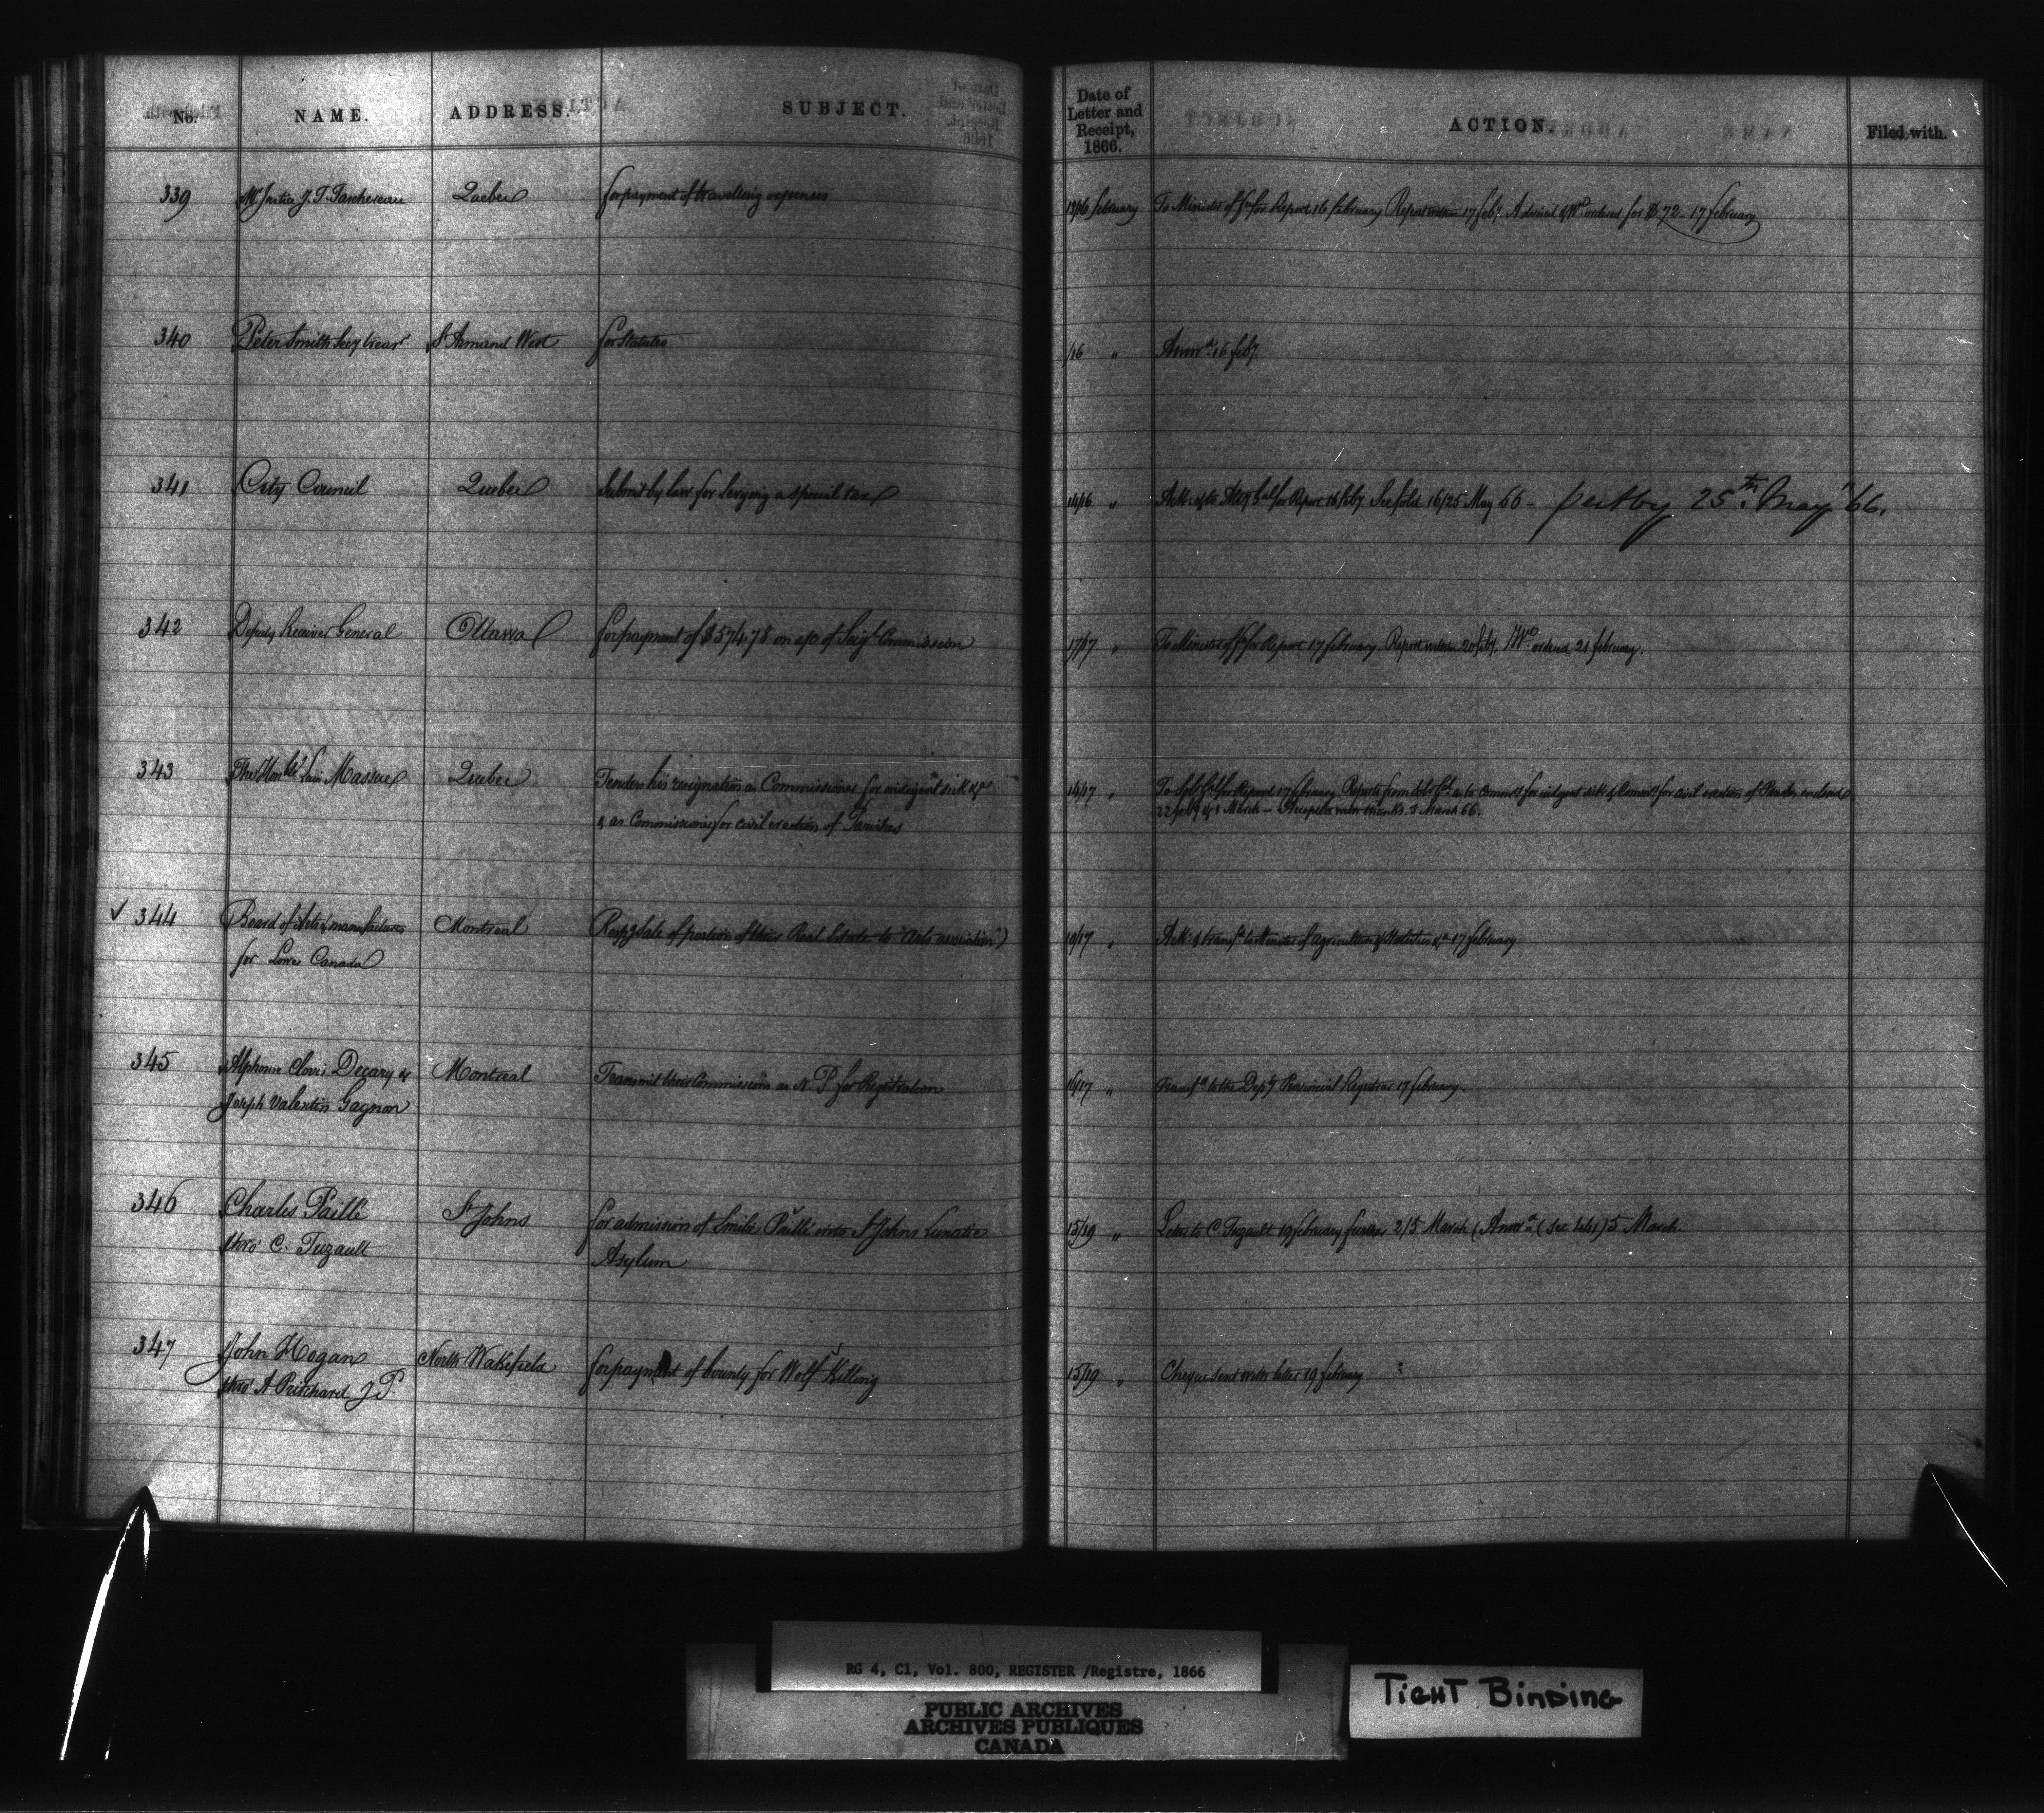 No.
NAME.
ADDRESS.
SUBJECT.
Date of
Letter and
Receipt,
1866.
ACTION.
Filed with.
339
Mr Justice J. T. Taschereau
Quebec
for payment of travelling expenses
13/16 February
To Minister of for Report 16 February Report 17 Feby ordered for $72 - 17 February
340
Peter Smith Secy treasr
St Armand West
for Statutes
/16 "
Answd 16 Feby
341
City Council
Quebec
Submit by law for levying a special tax
14/16 "
Ack: & to Atty Genl for Report 16 Feby 16/25 May 66 - 25th May "66.
342
Deputy Receiver General
Ottawa
for payment of $574.78 on a/c of Seigl Commission
17/17 "
To Minister of for Report 17 February. Report 20 Feby. Wt ordered 21 February.
343
The Honble Louis Massue
Quebec
Tenders his resignation as Commissioner for indigent sick &c
& as Commissioner for civil erection of Parishes
14/17 "
for Report 17 February. Reports from as to Commr for indigent sick & Commr for civil erection of Parishes
22 Feby & 1 March - with thanks 5 March 66.
✓ 344
Board of Arts & manufactures
for Lower Canada
Montreal
Respg Sale of portion of their Real Estate to "Arts association")
10/17 "
Ack: & transfd to Minister of Agriculture & Statistics &c 17 February
345
Alphonse Clovis Decary &
Joseph Valentin Gagnon
Montreal
Transmit their Commissions as N. P. for Registration
16/17 "
Transfd to the Depty Provincial Registrar 17 February.
346
Charles Paillé
thro' C. Tugault
St Johns
for admission of Emilie Paillé into St Johns Lunatic
Asylum
15/19 "
Letter to C. Tugault 19 February further 2/5 March (Answd (see letter) 5 March.
347
John Hogan
thro' A Pritchard J. P.
North Wakefield
for payment of bounty for Wolf Killing
15/19 "
Cheque sent with letter 19 February
RG 4, C1, Vol. 800, REGISTER /Registre, 1866
PUBLIC ARCHIVES
ARCHIVES PUBLIQUES
CANADA
TIGHT BINDING